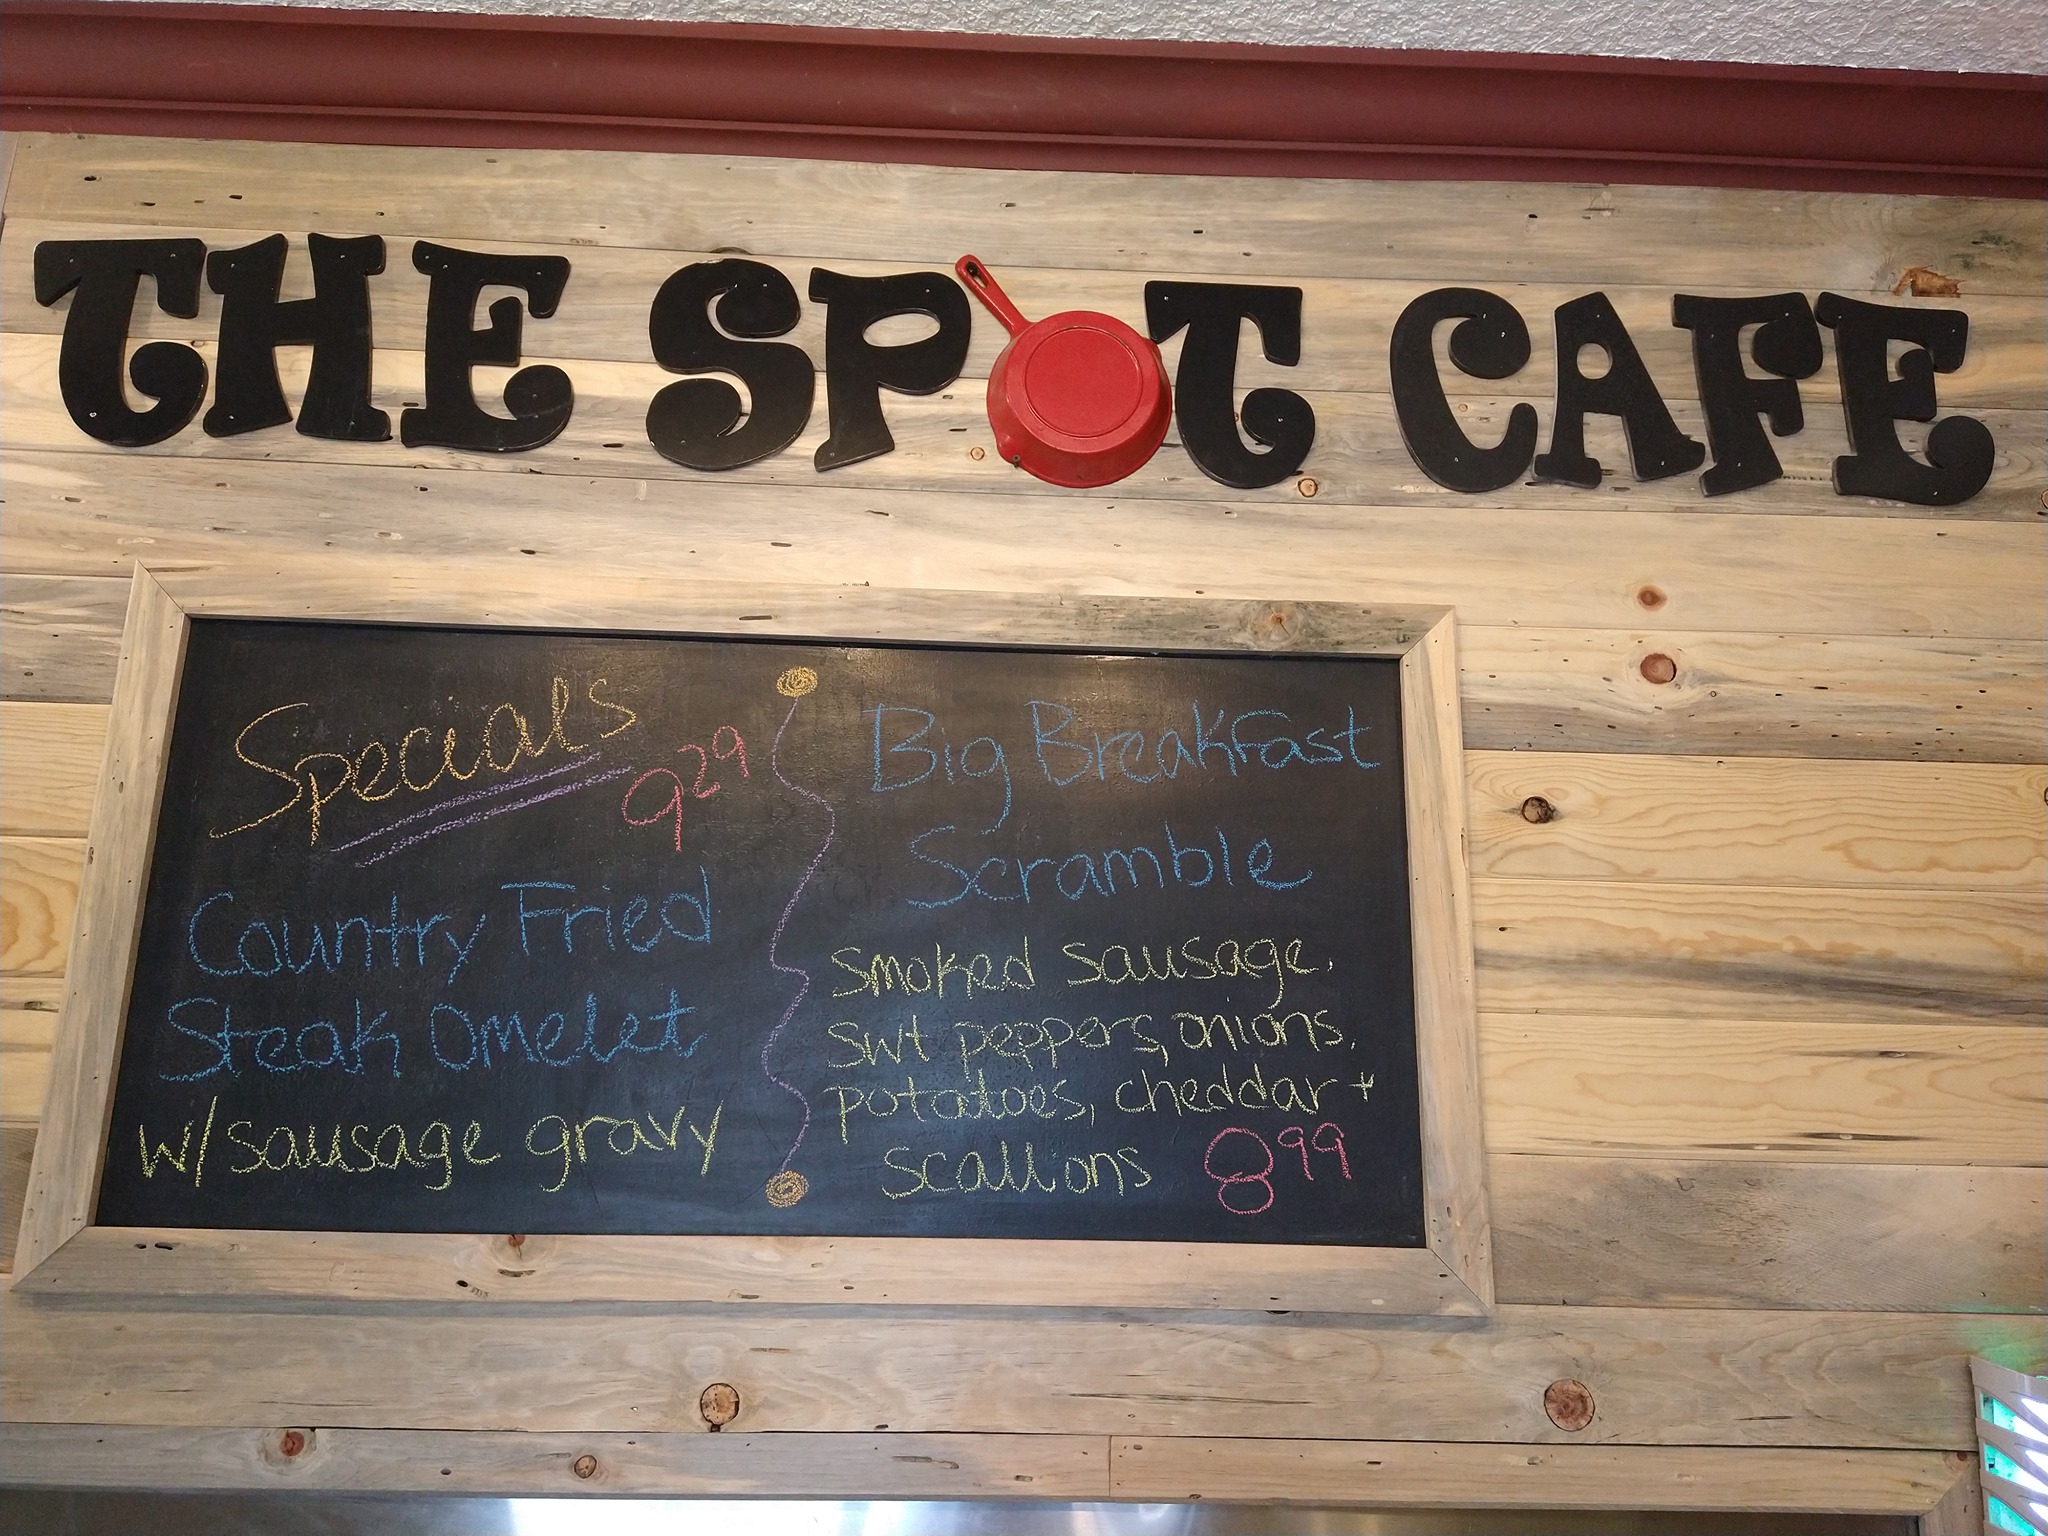 THE SPOT CAFE
Specials
9 29
Country Fried
Steak Omelet
w/ sausage gravy
Big Breakfast
Scramble
smoked sausage,
swt peppers, onions,
potatoes, cheddar +
scallions 8 99